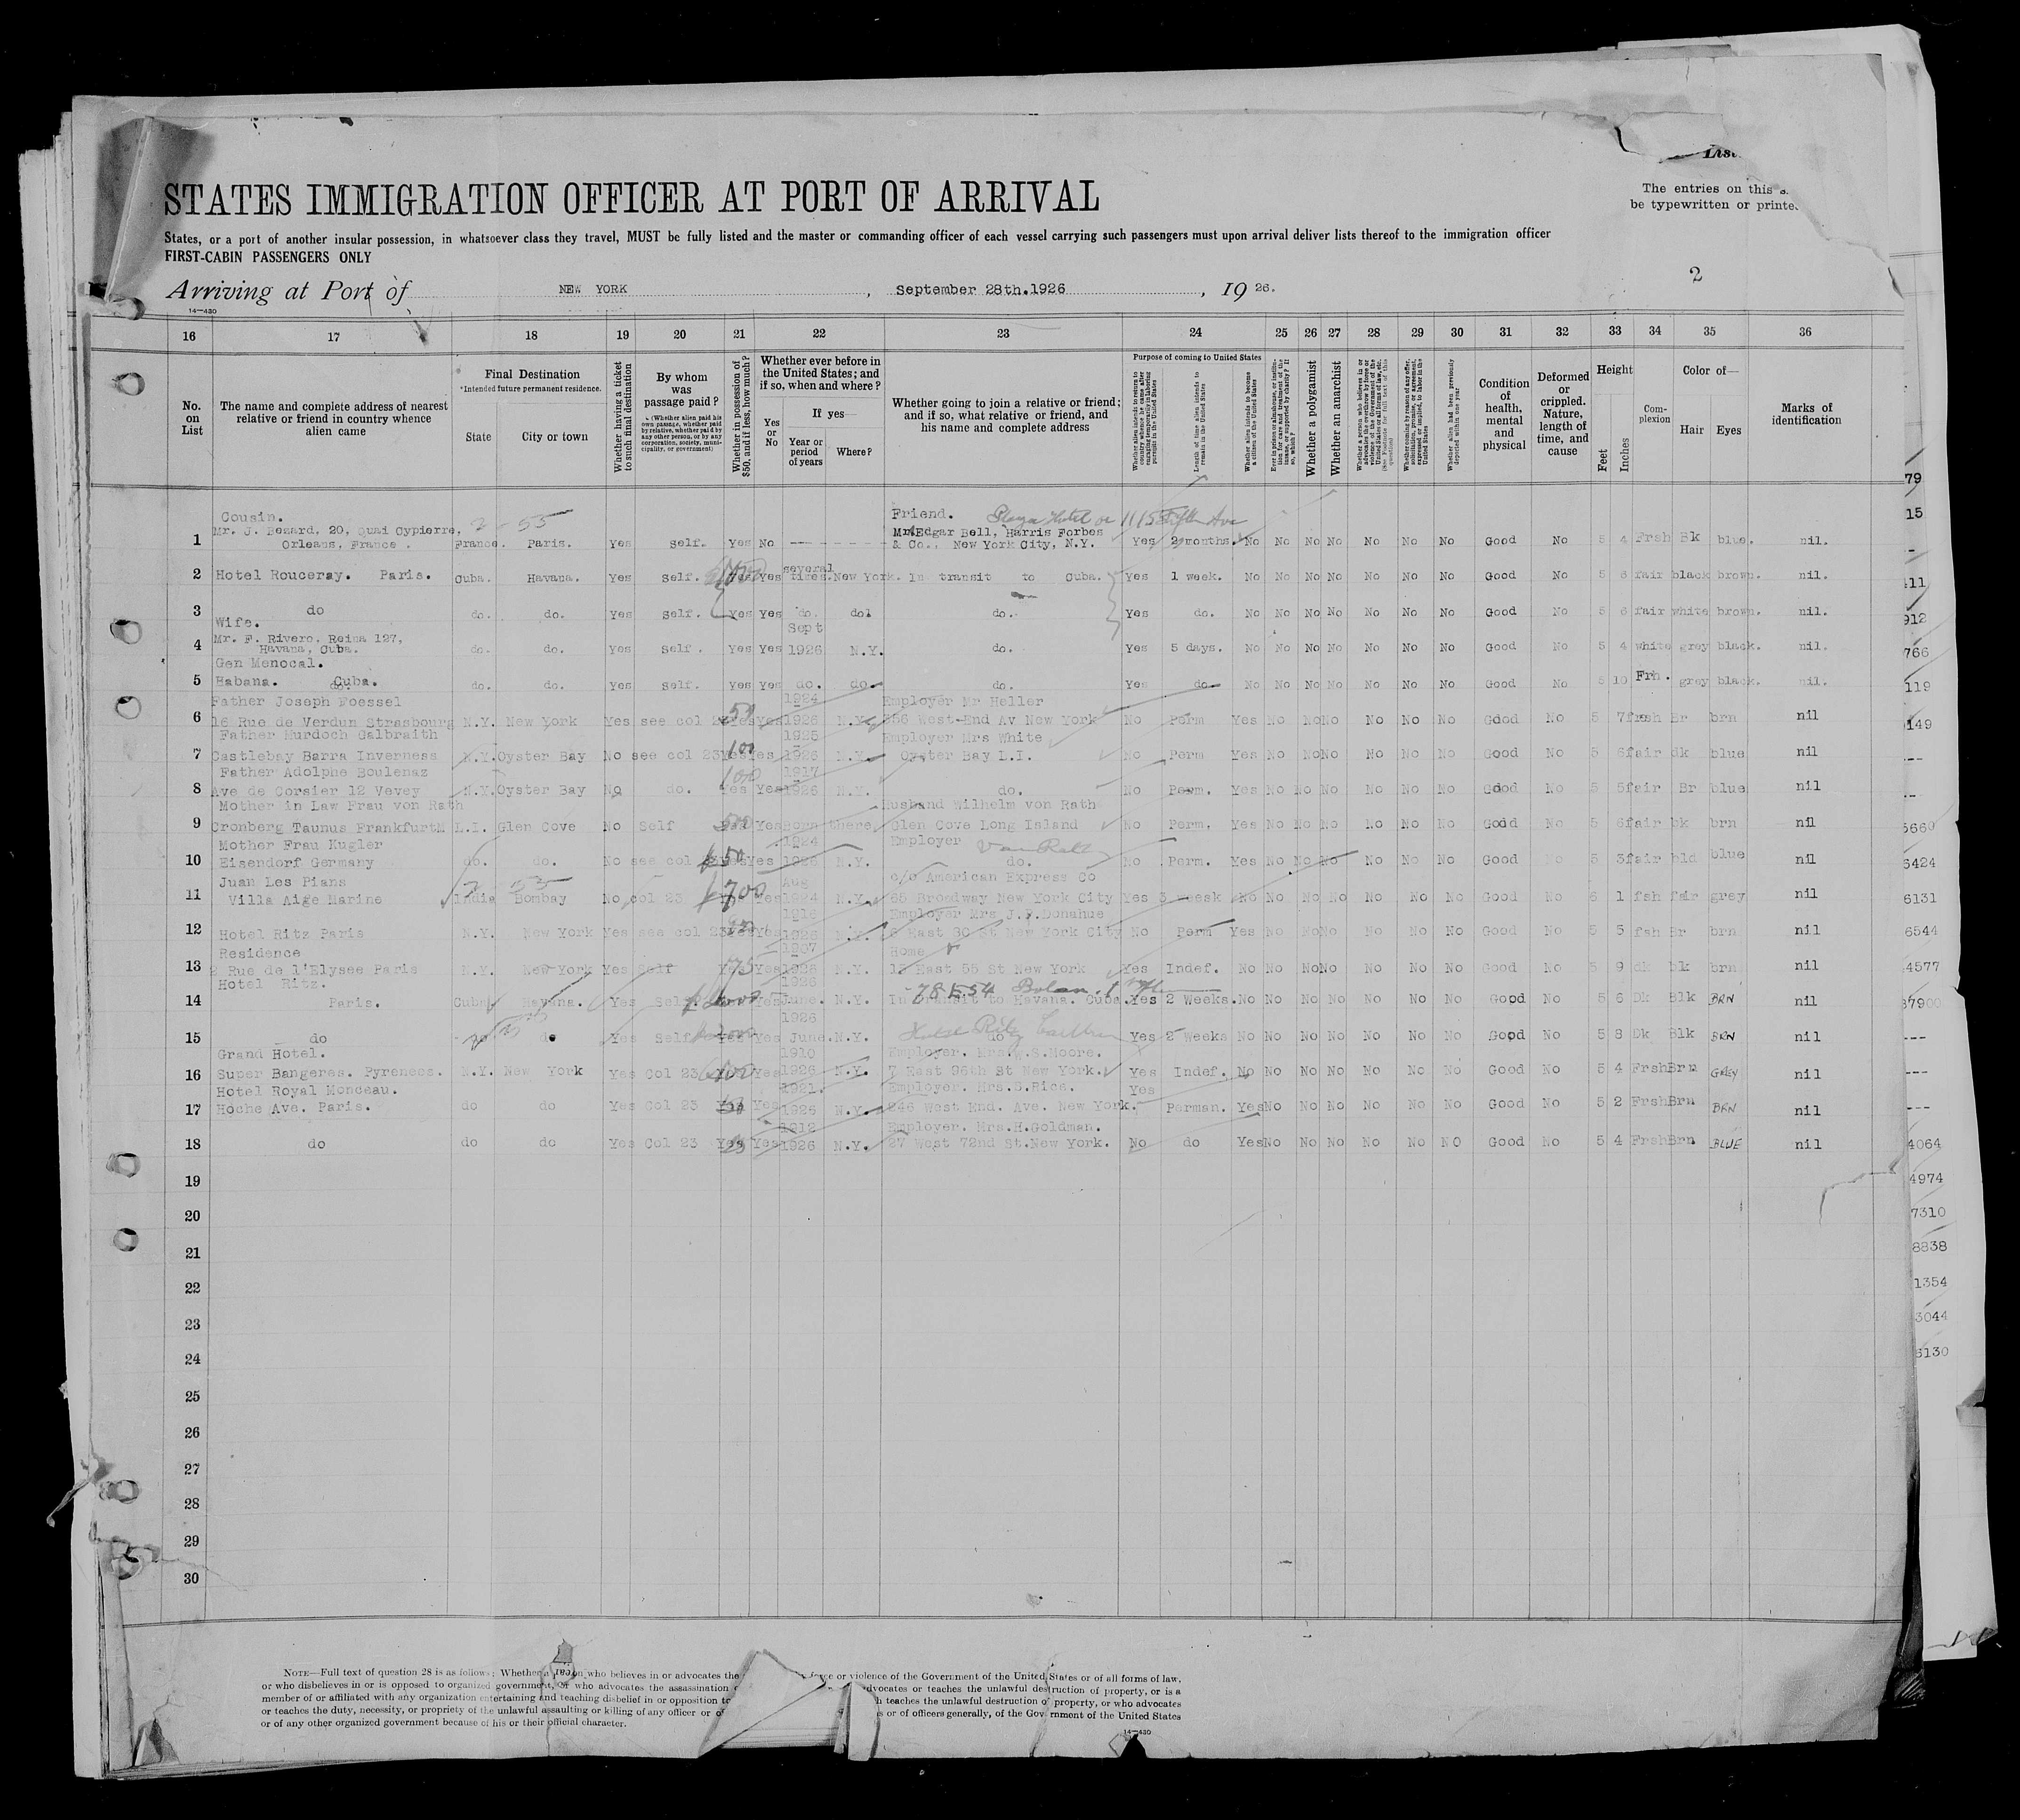 List
STATES IMMIGRATION OFFICER AT PORT OF ARRIVAL
The entries on this
be typewritten or printe
States, or a port of another insular possession, in whatsoever class they travel, MUST be fully listed and the master or commanding officer of each vessel carrying such passengers must upon arrival deliver lists thereof to the immigration officer
FIRST-CABIN PASSENGERS ONLY
2
Arriving at Port of NEW YORK , September 28th.1926 , 19 26.
14—430
16 17 18 19 20 21 22 23 24 25 26 27 28 29 30 31 32 33 34 35 36
No. on List
The name and complete address of nearest relative or friend in country whence alien came
Final Destination
*Intended future permanent residence.
State
City or town
Whether having a ticket to such final destination
By whom was passage paid?
(Whether alien paid his own passage, whether paid by relative, whether paid by any other person, or by any corporation, society, municipality, or government)
Whether in possession of $50, and if less, how much?
Whether ever before in the United States; and if so, when and where?
Yes or No
If yes—
Year or period of years
Where?
Whether going to join a relative or friend; and if so, what relative or friend, and his name and complete address
Purpose of coming to United States
Whether alien intends to return to country whence he came after engaging temporarily in laboring pursuits in the United States
Length of time alien intends to remain in the United States
Whether alien intends to become a citizen of the United States
Ever in prison or almshouse, or institution for care and treatment of the insane, or supported by charity? If so, which?
Whether a polygamist
Whether an anarchist
Whether coming by reason of any offer, solicitation, promise, or agreement, expressed or implied, to labor in the United States
Whether alien had been previously deported within one year
Condition of health, mental and physical
Deformed or crippled. Nature, length of time, and cause
Height
Feet
Inches
Complexion
Color of—
Hair
Eyes
Marks of identification
Cousin. 2 - 55 Friend. Plaza Hotel or 1115 Fifth Ave
Mr. J. Bezard, 20, Quai Cypierre, Mr Edgar Bell, Harris Forbes
1 Orleans, France . France. Paris. Yes Self. Yes No - - - - - - & Co., New York City, N.Y. Yes 2 months. No No No No No No No Good No 5 4 Frsh Bk blue. nil.
several
2 Hotel Rouceray. Paris. Cuba. Havana. Yes Self. Yes Yes times. New York. In transit to Cuba. Yes 1 week. No No No No No No No Good No 5 6 fair black brown. nil.
3 do do. do. Yes Self. Yes Yes do. do. do. Yes do. No No No No No No No Good No 5 6 fair white brown. nil.
Wife. Sept
Mr. F. Rivero, Reina 127,
4 Havana, Cuba. do. do. Yes Self. Yes Yes 1926 N.Y. do. Yes 5 days. No No No No No No No Good No 5 4 white grey black. nil.
Gen Menocal.
5 Habana. Cuba. do. do. Yes Self. Yes Yes do. do. do. Yes do. No No No No No No No Good No 5 10 Frh. grey black. nil.
Father Joseph Foessel 50 1924 Employer Mr Heller
6 16 Rue de Verdun Strasbourg N.Y. New York Yes see col 23 Yes Yes 1926 N.Y. 256 West-End Av New York No Perm Yes No No No No No No Good No 5 7 frsh Br brn nil
Father Murdoch Galbraith 100 1925 Employer Mrs White
7 Castlebay Barra Inverness N.Y. Oyster Bay No see col 23 Yes Yes 1926 N.Y. Oyster Bay L.I. No Perm Yes No No No No No No Good No 5 6 fair dk blue nil
Father Adolphe Boulenaz 100 1917
8 Ave de Corsier 12 Vevey N.Y. Oyster Bay No do. Yes Yes 1926 N.Y. do. No Perm. Yes No No No No No No Good No 5 5 fair Br blue nil
Mother in Law Frau von Rath Husband Wilhelm von Rath
9 Cronberg Taunus FrankfurtM L.I. Glen Cove No Self 500 Yes Born there Glen Cove Long Island No Perm. Yes No No No No No No Good No 5 6 fair bk brn nil
Mother Frau Kugler 1924 Employer Von Rath
10 Eisendorf Germany do. do. No see col 23 50 Yes 1926 N.Y. do. No Perm. Yes No No No No No No Good No 5 3 fair bld blue nil
Juan Les Pians 2 - 55 Aug c/o American Express Co
11 Villa Aige Marine India Bombay No col 23 $700 Yes 1924 N.Y. 65 Broadway New York City Yes 3 week No No No No No No No Good No 6 1 fsh fair grey nil
1916 Employer Mrs J.P.Donahue
12 Hotel Ritz Paris N.Y. New York Yes see col 23 Yes Yes 1926 N.Y. East 80 St New York City No Perm Yes No No No No No No Good No 5 5 fsh Br brn nil
Residence 1907 Home
13 2 Rue de l'Elysee Paris N.Y. New York Yes Self 75 Yes 1926 N.Y. 13 East 55 St New York Yes Indef. No No No No No No No Good No 5 9 dk blk brn nil
Hotel Ritz. 1926
14 Paris. Cuba Havana. Yes Self Yes June. N.Y. In transit to Havana. Cuba. Yes 2 Weeks. No No No No No No No Good No 5 6 Dk Blk BRN nil
1926 Hotel Ritz Carlton
15 do do do Yes Self Yes Yes June. N.Y. do Yes 2 Weeks No No No No No No No Good No 5 8 Dk Blk BRN nil
Grand Hotel. 1910 Employer. Mrs.W.S.Moore.
16 Super Bangeres. Pyrenees. N.Y. New York Yes Col 23 Yes 1926 N.Y. 7 East 96th St New York. Yes Indef. No No No No No No No Good No 5 4 Frsh Brn GREY nil
Hotel Royal Monceau. 1921. Employer. Mrs.S.Rice. Yes
17 Hoche Ave. Paris. do do Yes Col 23 Yes 1926 N.Y. 246 West End. Ave. New York. Perman. Yes No No No No No No Good No 5 2 Frsh Brn BRN nil
1912 Employer. Mrs.H.Goldman.
18 do do do Yes Col 23 Yes Yes 1926 N.Y. 27 West 72nd St.New York. No do Yes No No No No No NO Good No 5 4 Frsh Brn BLUE nil
19
20
21
22
23
24
25
26
27
28
29
30
79
15
411
912
766
119
149
5669
6424
6131
6544
4577
37900
4064
4974
7310
8838
1354
3044
6130
NOTE—Full text of question 28 is as follows: Whether a person who believes in or advocates the force or violence of the Government of the United States or of all forms of law,
or who disbelieves in or is opposed to organized government, or who advocates the assassination advocates or teaches the unlawful destruction of property, or is a
member of or affiliated with any organization entertaining and teaching disbelief in or opposition to teaches the unlawful destruction of property, or who advocates
or teaches the duty, necessity, or propriety of the unlawful assaulting or killing of any officer or of officers generally, of the Government of the United States
or of any other organized government because of his or their official character.
14—430